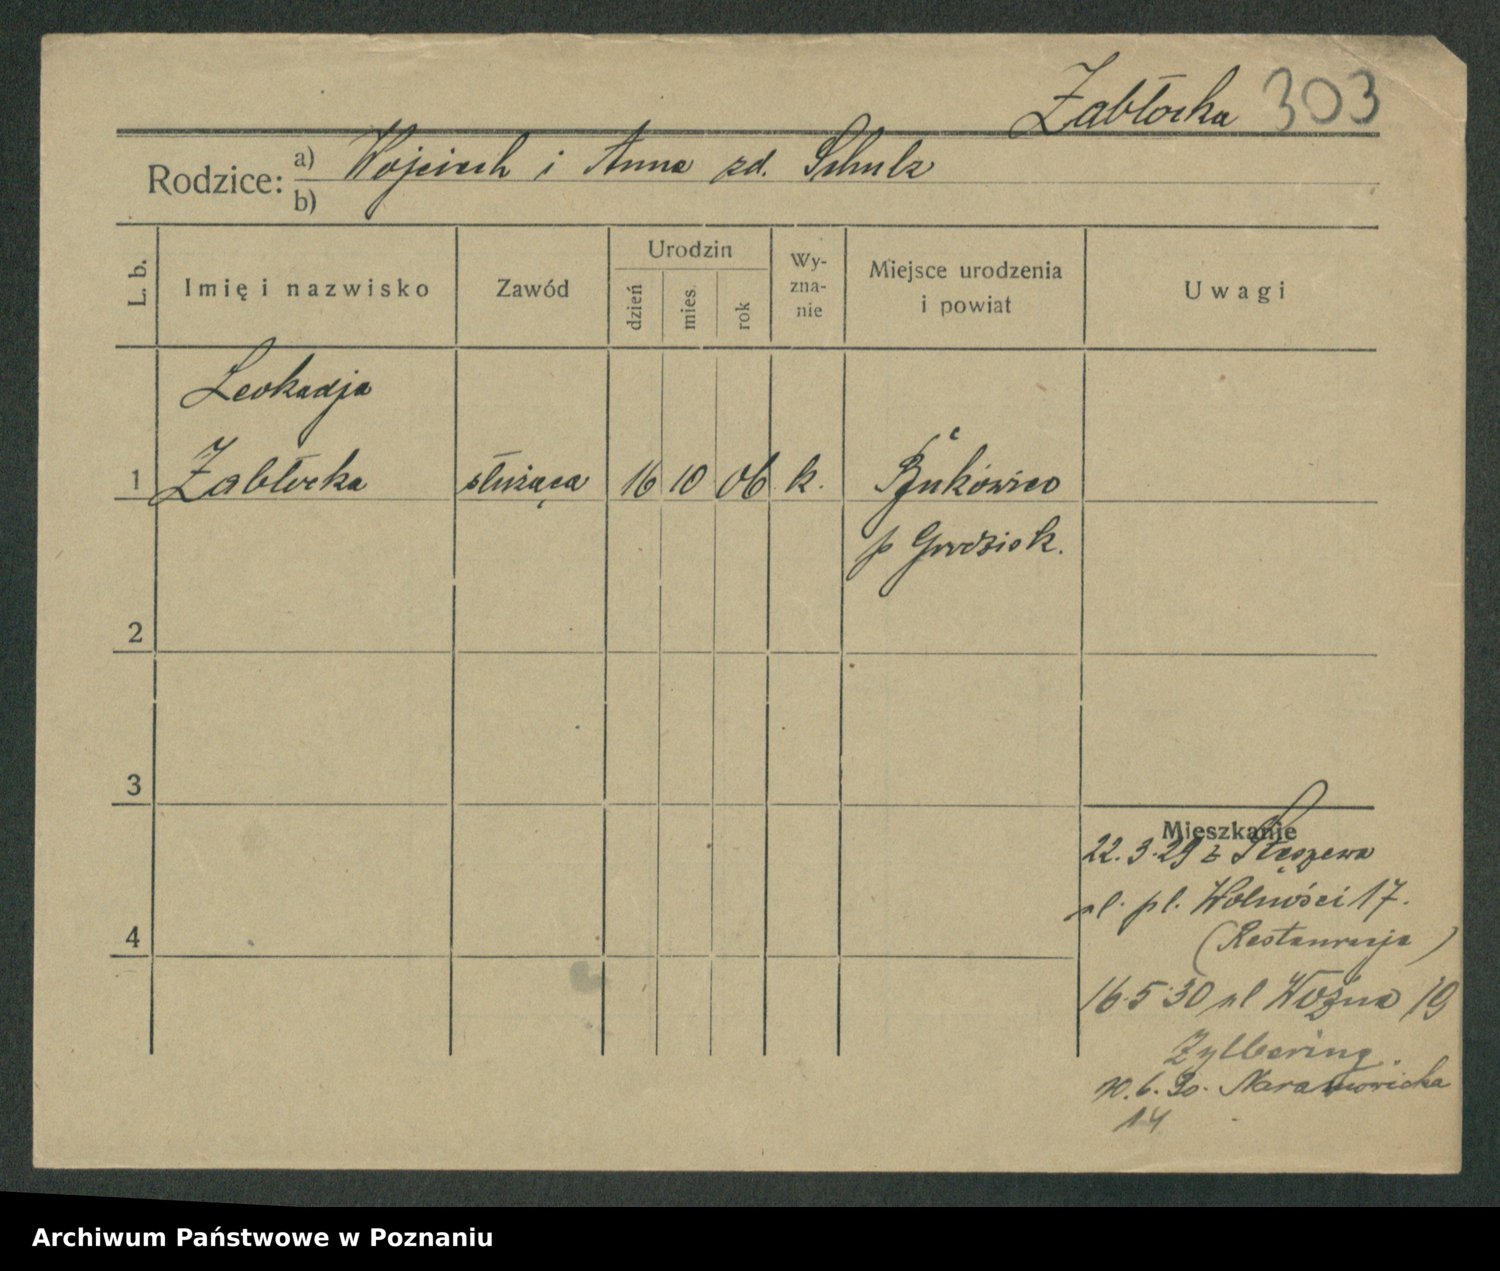 Zabłocka 303
Rodzice: a) Wojciech i Anna zd. Schulz
b)
L. b. Imię i nazwisko Zawód Urodzin dzień mies. rok Wy-zna-nie Miejsce urodzenia i powiat Uwagi
Leokadja
1 Zabłocka służąca 16 10 06 k. Bukówiec
p Grodzisk.
2
3
Mieszkanie
22.3.29 z Stęszewa
ul. pl. Wolności 17.
4
(Restauracja)
16.5.30 ul Woźna 19
Zylbering.
6. 30. Naramowicka
14
Archiwum Państwowe w Poznaniu